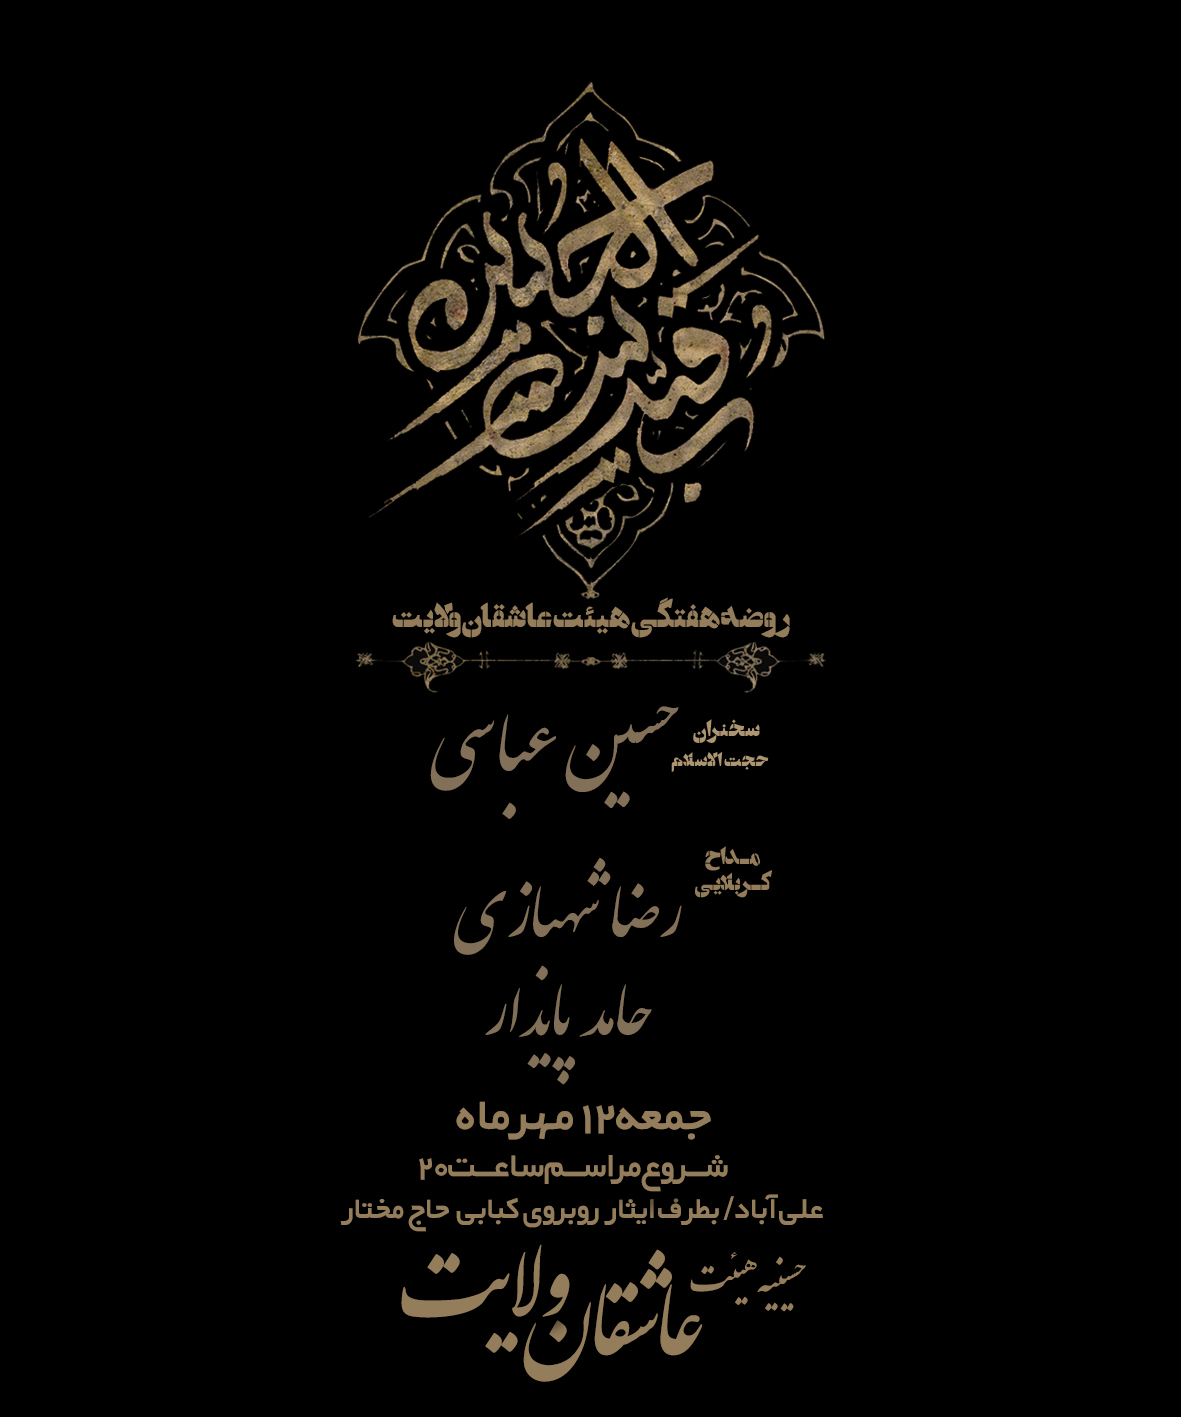 روضه هفتگی هیئت عاشقان ولایت
سخنران
حجت الاسلام
حسین عباسی
مداح
کربلایی
رضا شهبازی
حامد پایذار
جمعه ۱۲ مهر ماه
شروع مراسم ساعت ۲۰
علی آباد / بطرف ایثار روبروی کبابی حاج مختار
حسینیه هیئت
عاشقان ولایت